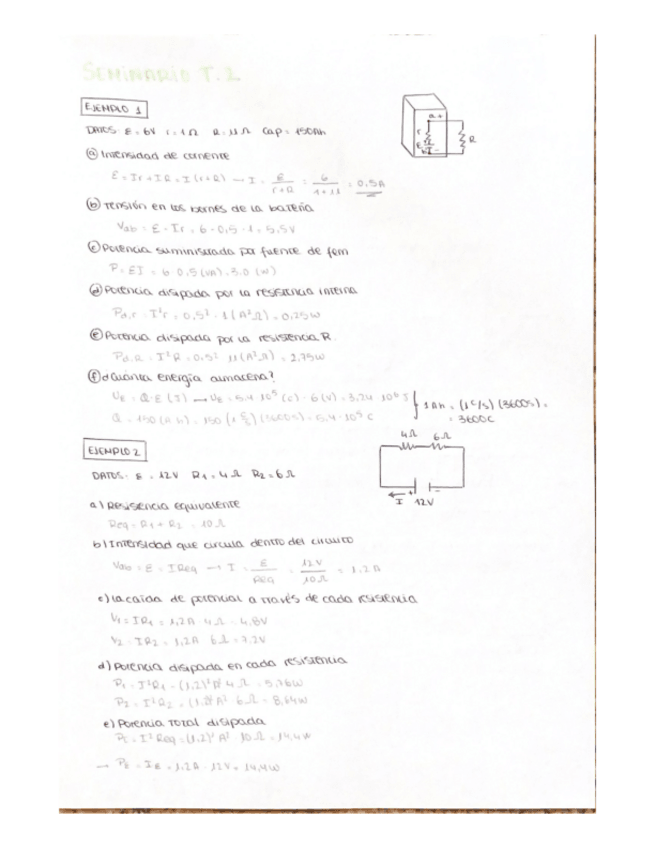 SEMINARIO T.2
EJEMPLO 1
DATOS: ε = 6V r = 1Ω R = 11Ω Cap = 150Ah
a+
r
ε
b -
R
ⓐ Intensidad de corriente
ε = Ir + IR = I (r+R) → I = ε/(r+R) = 6/(1+11) = 0,5A
ⓑ Tensión en los bornes de la batería
Vab = ε - Ir = 6 - 0,5 · 1 = 5,5V
ⓒ Potencia suministrada por fuente de fem
P = εI = 6 · 0,5 (VA) = 3,0 (W)
ⓓ Potencia disipada por la resistencia interna
Pd,r = I²r = 0,5² · 1 (A²Ω) = 0,25W
ⓔ Potencia disipada por la resistencia R.
Pd,R = I²R = 0,5² · 11 (A²Ω) = 2,75W
ⓕ ¿Cuánta energía almacena?
UE = Q·ε (J) → UE = 5,4 · 10⁵ (C) · 6 (V) = 3,24 · 10⁶ J
Q = 150 (A h) = 150 (1 C/s) (3600s) = 5,4 · 10⁵ C
1 Ah = (1 C/s) (3600s) =
= 3600C
EJEMPLO 2
4Ω 6Ω
DATOS: ε = 12V R₁ = 4Ω R₂ = 6Ω
+ -
I 12V
a) Resistencia equivalente
Req = R₁ + R₂ = 10Ω
b) Intensidad que circula dentro del circuito
Vab = ε = I Req → I = ε/Req = 12V/10Ω = 1,2A
c) La caída de potencial a través de cada resistencia
V₁ = IR₁ = 1,2A · 4Ω = 4,8V
V₂ = IR₂ = 1,2A · 6Ω = 7,2V
d) Potencia disipada en cada resistencia
P₁ = I²R₁ = (1,2)² A² 4Ω = 5,76W
P₂ = I²R₂ = (1,2)² A² 6Ω = 8,64W
e) Potencia total disipada
Pt = I² Req = (1,2)² A² 10Ω = 14,4W
→ Pε = Iε = 1,2A · 12V = 14,4W